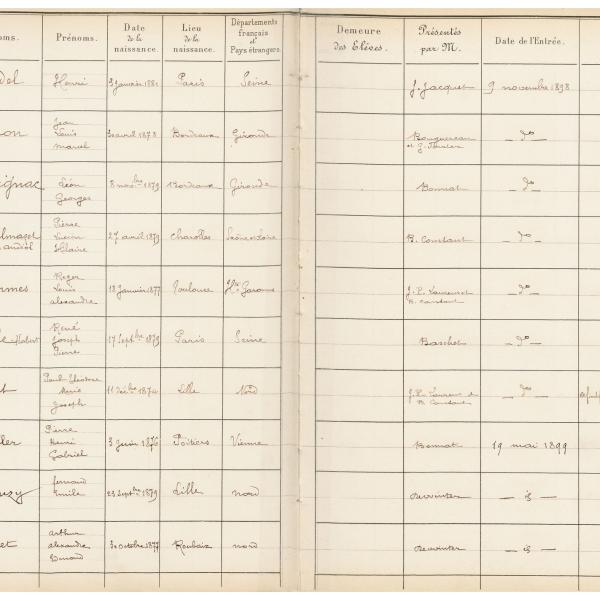 oms.
Prénoms.
Date
de la
naissance.
Lieu
de la
naissance.
Départements
français
et
Pays étrangers.
Demeure
des Elèves.
Présentés
par M.
Date de l'Entrée.
del Henri 9 janvier 1881 Paris Seine J. Jacquet 9 novembre 1898
on Jean
Louis
Marcel
30 avril 1878 Bordeaux Gironde Bouguereau
et G. Ferrier
— d° —
ignac Léon
Georges
8 nov.bre 1879 Bordeaux Gironde Bonnat — d° —
Pierre
Lucien
Hilaire
27 avril 1879 Charolles Saône et Loire B. Constant — d° —
rmes Roger
Louis
Alexandre
18 janvier 1877 Toulouse Hte Garonne J. P. Laurens et
B. Constant
— d° —
René
Joseph
Pierre
17 Sept.bre 1879 Paris Seine Baschet — d° —
t Paul Théodore
Marie
Joseph
11 déc.bre 1874 Lille Nord J. P. Laurens et
B. Constant
— d° —
ler Pierre
Henri
Gabriel
3 Juin 1876 Poitiers Vienne Bonnat 19 mai 1899
fernand
Emile
23 Sept.bre 1879 Lille nord Dewinter — is —
et arthur
alexandre
Edmond
30 octobre 1877 Roubaix nord Dewinter — is —